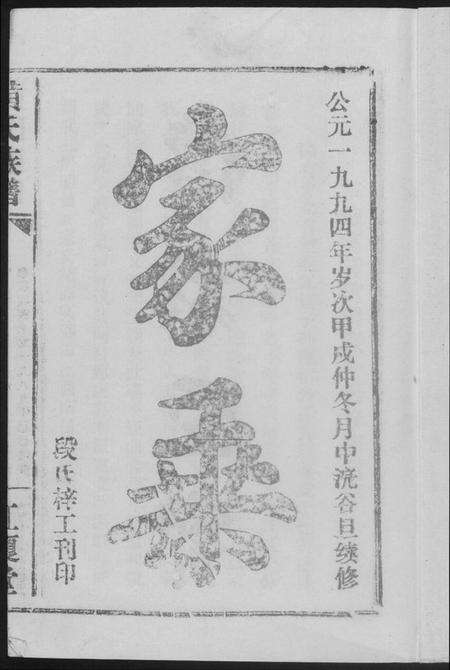 公元一九九四年岁次甲戌仲冬月中浣谷旦续修
家乘
段氏梓工刊印
氏族譜
堂